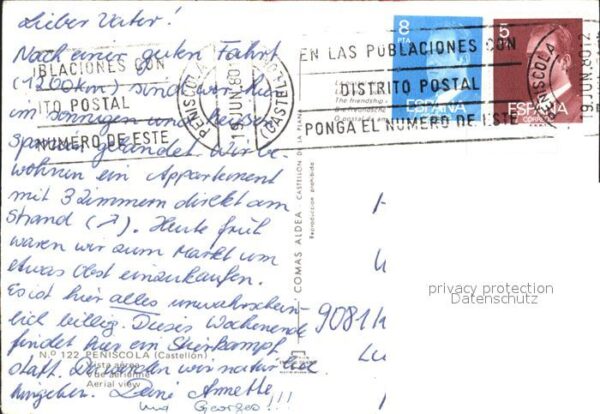 Lieber Vater!
Nach einer guten Fahrt
(1200km) sind wir hier
im sonnigen und heissen
Spanien gelandet. Wir be-
wohnen ein Appartement
mit 3 Zimmern direkt am
Strand (↗). Heute früh
waren wir zum Markt um
etwas Obst einzukaufen.
Es ist hier alles unwahrschein-
lich billig. Dieses Wochenende
findet hier ein Stierkampf
statt. Da werden wir natürlich
hingehen. Deine Annette
und Georges!!!
N.º 122 PEÑISCOLA (Castellón)
Vista aérea
Vue aérienne
Aerial view
COMAS ALDEA CASTELLON DE LA PLANA
Reproducción prohibida
8
PTA
ESPAÑA
5
ESPAÑA
CORREOS
BLACIONES CON
ITO POSTAL
NUMERO DE ESTE
PEÑISCOLA
9 JUN. 80
(CASTEL
EN LAS POBLACIONES CON
DISTRITO POSTAL
PONGA EL NUMERO DE ESTE
PEÑISCOLA
9 JUN. 80 12
The friendship
9081
privacy protection
Datenschutz